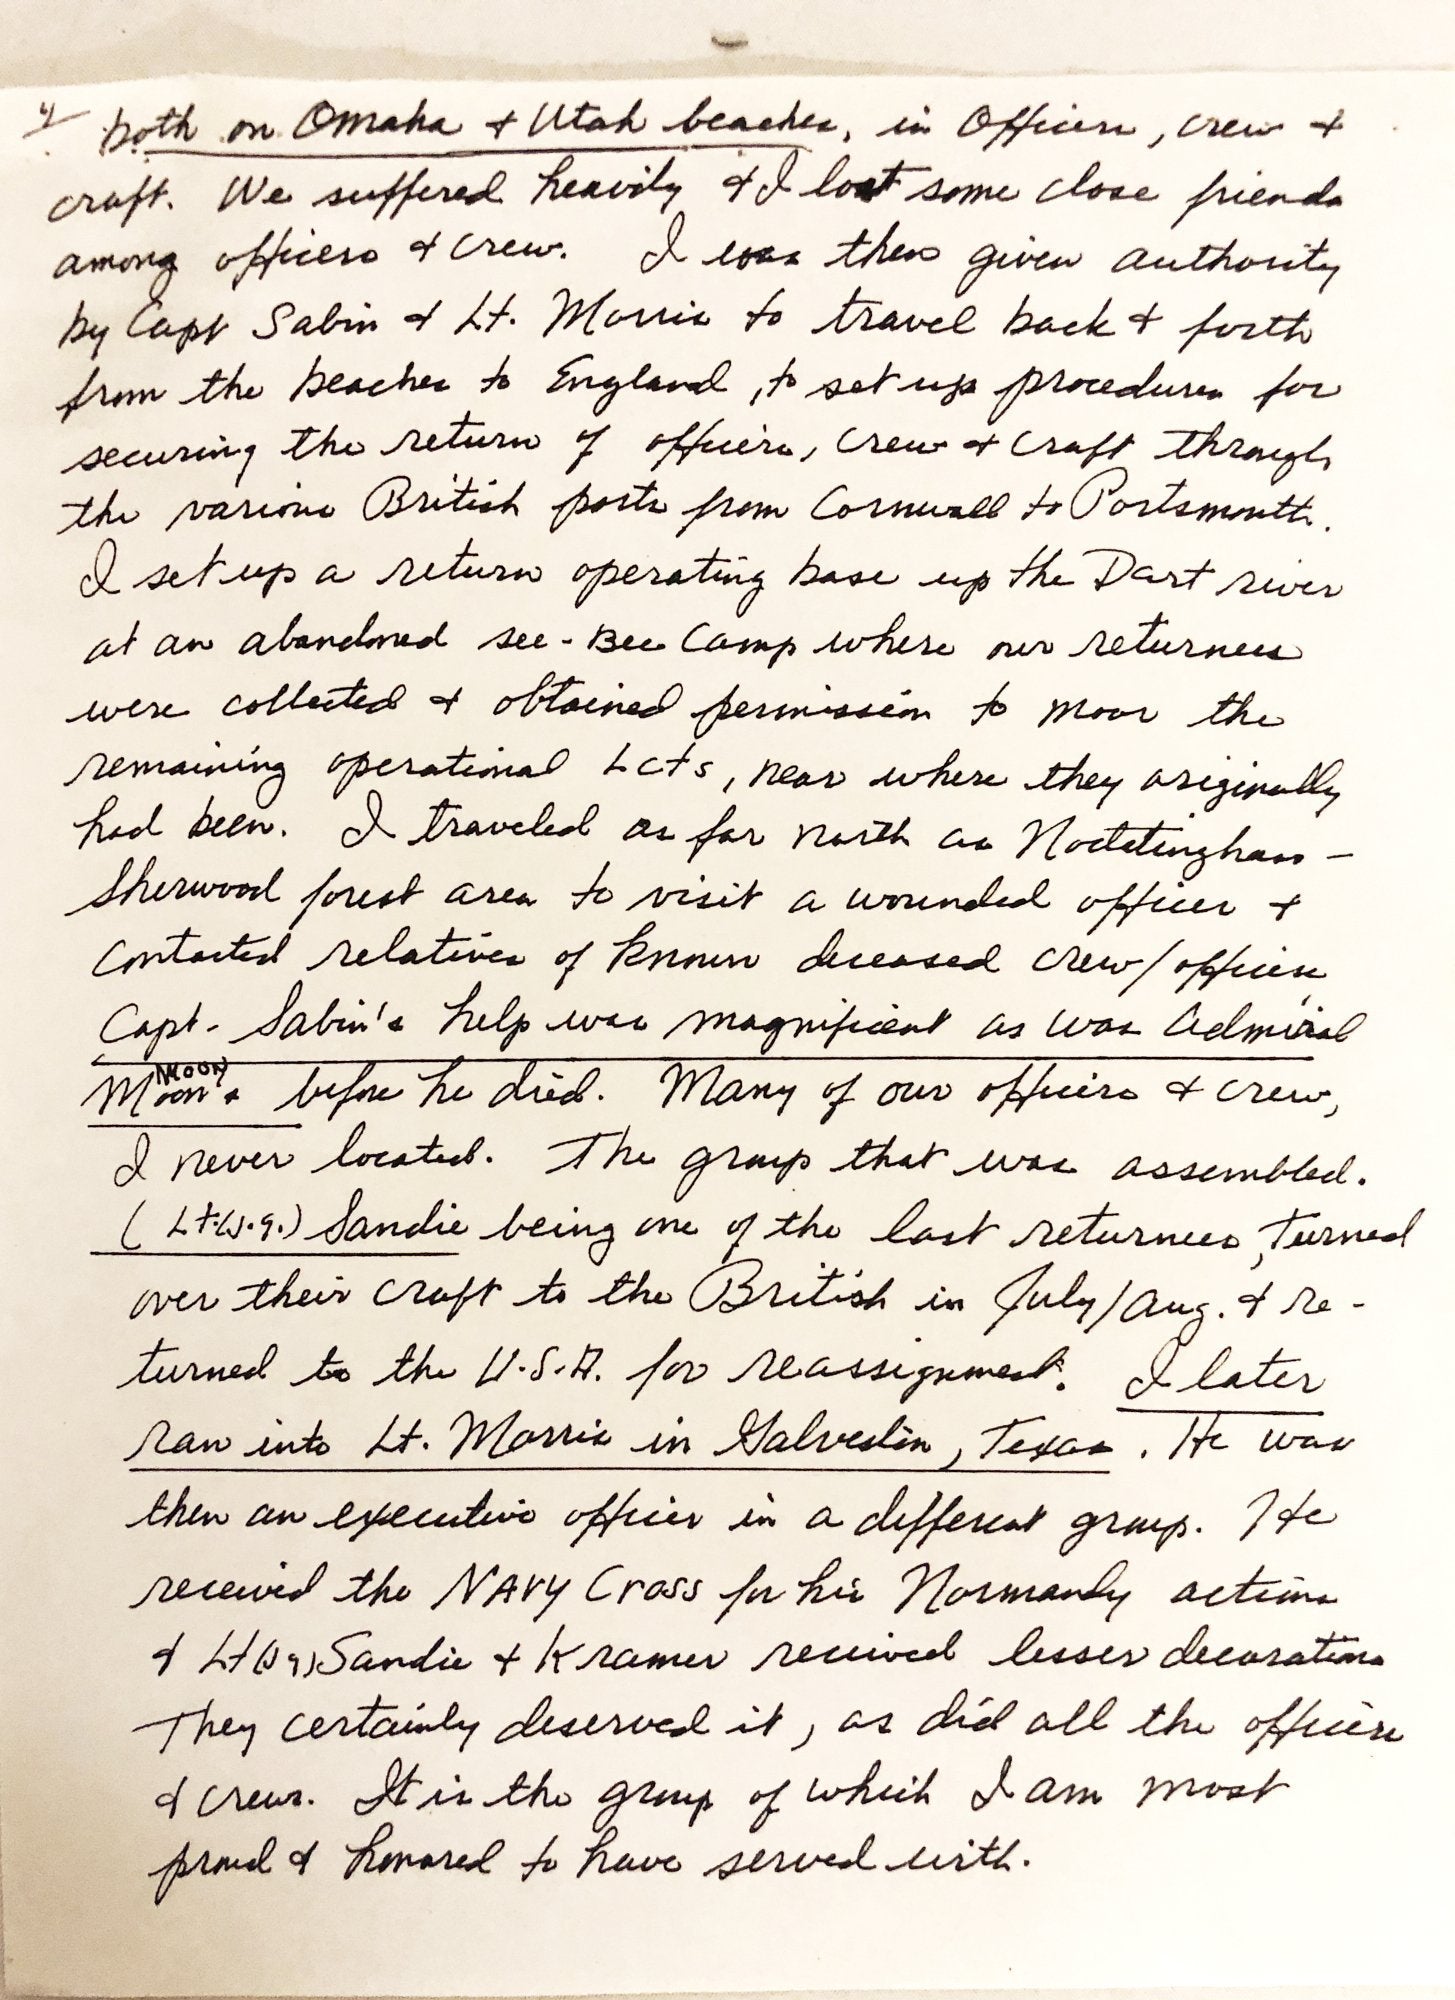 4/ both on Omaha & Utah beaches, in Officers, crew &
craft. We suffered heavily & I lost some close friends
among officers & crew. I was then given authority
by Capt Sabin & Lt. Morris to travel back & forth
from the beaches to England, to set up procedures for
securing the return of officers, crew & craft through
the various British ports from Cornwall to Portsmouth.
I set up a return operating base up the Dart river
at an abandoned see-Bee Camp where our returnees
were collected & obtained permission to moor the
remaining operational Lcts, near where they originally
had been. I traveled as far north as Nodttingham -
Sherwood forest area to visit a wounded officer &
contacted relatives of known deceased crew/officers
Capt. Sabin's help was magnificent as was Admiral
Moon's (MOON) before he died. Many of our officers & crew,
I never located. The group that was assembled.
(Lt.(J.g.) Sandie being one of the last returnees, turned
over their craft to the British in July/Aug. & re-
turned to the U.S.A. for reassignment. I later
ran into Lt. Morris in Galveston, Texas. He was
then an executive officer in a different group. He
received the NAVY Cross for his Normandy actions
& Lt(Jg) Sandie & Kramer received lesser decorations
They certainly deserved it, as did all the officers
& crews. It is the group of which I am most
proud & honored to have served with.